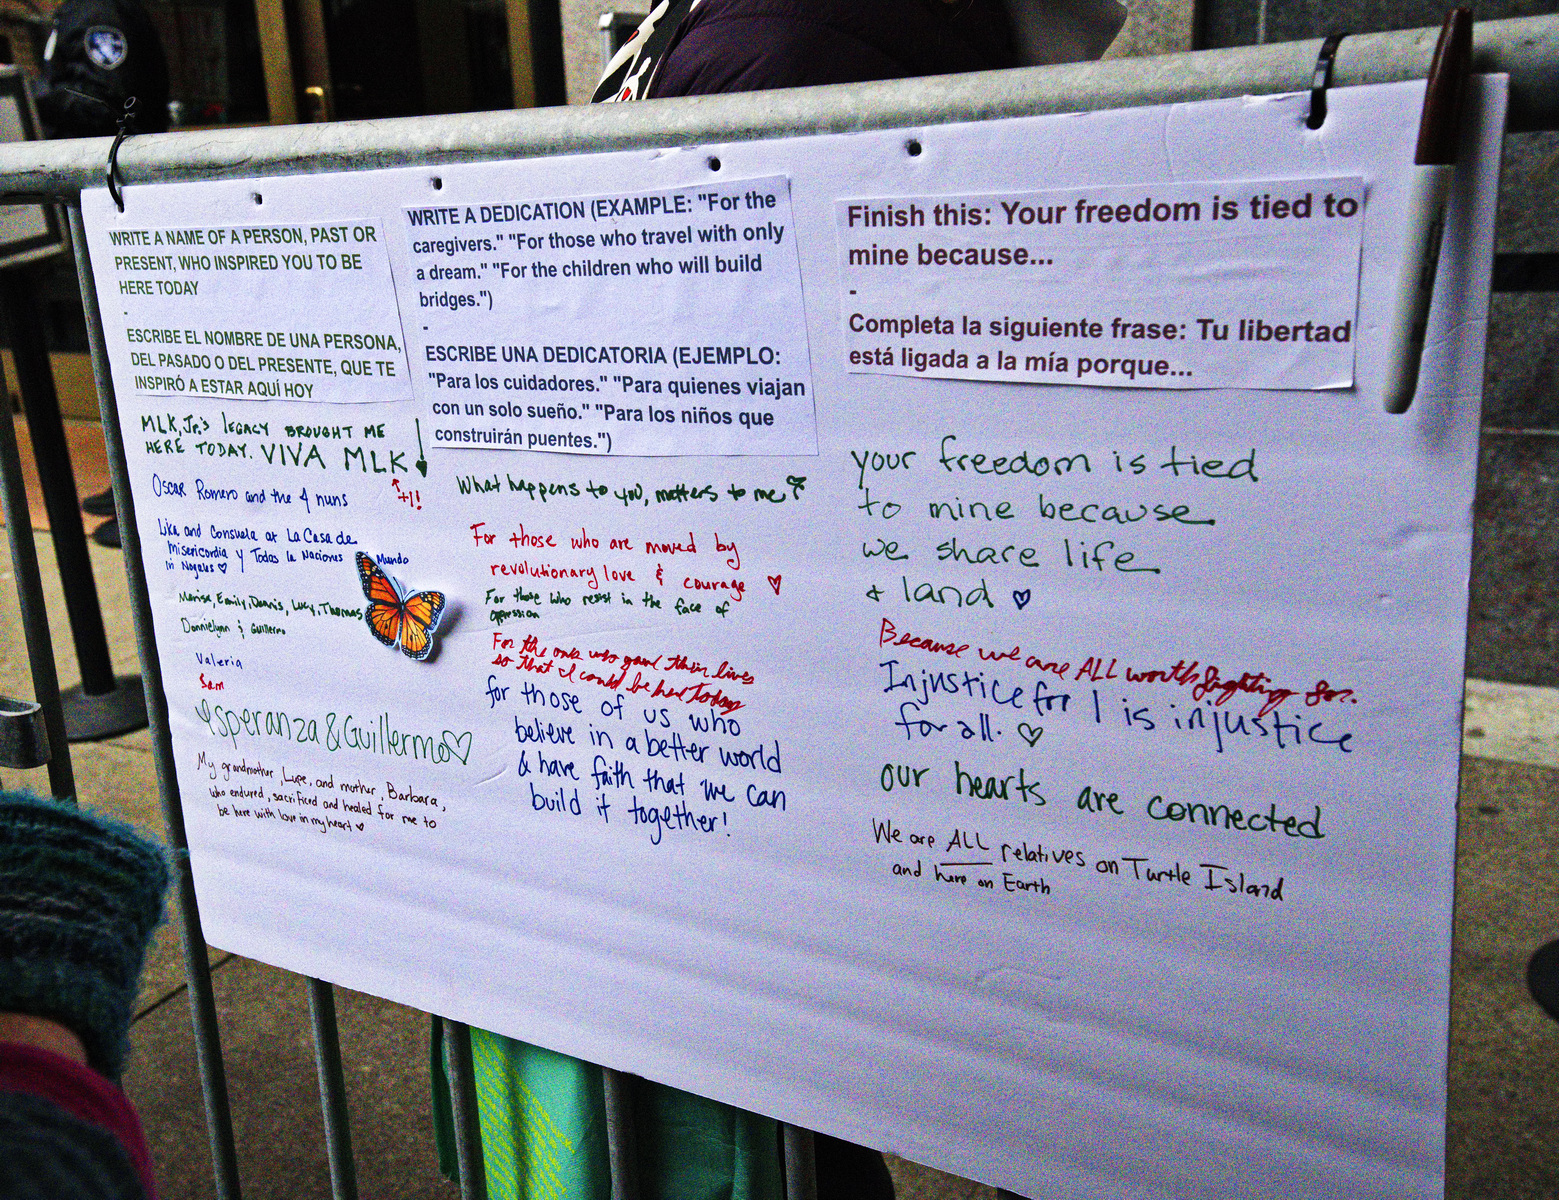 WRITE A NAME OF A PERSON, PAST OR
PRESENT, WHO INSPIRED YOU TO BE
HERE TODAY
-
ESCRIBE EL NOMBRE DE UNA PERSONA,
DEL PASADO O DEL PRESENTE, QUE TE
INSPIRÓ A ESTAR AQUÍ HOY
MLK, Jr.'s LEGACY BROUGHT ME
HERE TODAY. VIVA MLK
+1!
Oscar Romero and the 4 nuns
Lika and Consuela at La Casa de
Misericordia y Todas la Naciones
in Nogales ♡
Mundo
Marisa, Emily, Dennis, Lucy, Thomas
Donnielynn & Guillermo
Valeria
Sam
Esperanza & Guillermo ♡
My grandmother, Lupe, and mother, Barbara,
who endured, sacrificed and healed for me to
be here with love in my heart ♡
WRITE A DEDICATION (EXAMPLE: "For the
caregivers." "For those who travel with only
a dream." "For the children who will build
bridges.")
-
ESCRIBE UNA DEDICATORIA (EJEMPLO:
"Para los cuidadores." "Para quienes viajan
con un solo sueño." "Para los niños que
construirán puentes.")
What happens to you, matters to me
For those who are moved by
revolutionary love & courage ♡
For those who resist in the face of
oppression
For the ones who gave their lives
so that I could be here today
for those of us who
believe in a better world
& have faith that we can
build it together!
Finish this: Your freedom is tied to
mine because...
-
Completa la siguiente frase: Tu libertad
está ligada a la mía porque...
your freedom is tied
to mine because
we share life
& land ♡
Because we are ALL worth fighting for.
Injustice for 1 is injustice
for all. ♡
our hearts are connected
We are ALL relatives on Turtle Island
and here on Earth